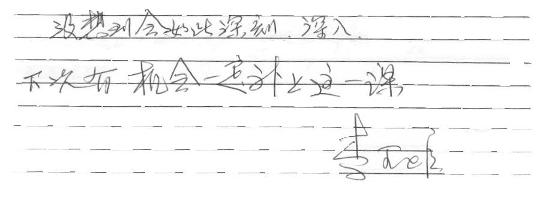 没想到会如此深刻.深入.
下次有机会一定补上这一课
李